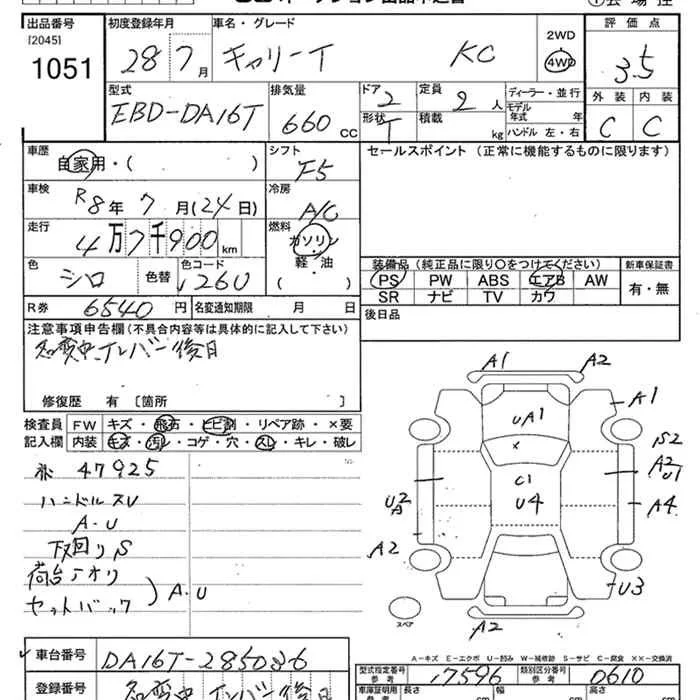 出品番号 初度登録年月 車名・グレード 評価点
[2045] 1051 28 7月 キャリーT KC 2WD 4WD 3.5
型式 排気量 ドア 定員 ディーラー・並行 外装 内装
EBD-DA16T 660cc 2 2人 モデル年式 年 C C
形状 T 積載 kg ハンドル 左・右
車歴 シフト セールスポイント (正常に機能するものに限ります)
自家用・( ) F5
車検 冷房
R8年 7月(24日) A/C
走行 燃料
4万7千900km ガソリン・軽・油 ( )
色 色コード 装備品 (純正品に限り○をつけてください) 新車保証書
シロ 色替 26U PS PW ABS エアB AW 有・無
SR ナビ TV カワ
R券 6540円 名変通知期限 月 日 後日品
注意事項申告欄(不具合内容等は具体的に記入して下さい)
名変中 ナンバー後日
修復歴 有 〔箇所 〕
検査員 FW キズ・飛石・ヒビ割・リペア跡・×要
記入欄 内装 キズ・汚レ・コゲ・穴・スレ・キレ・破レ
47925
ハンドルスU
A・U
下回りS
荷台アオリ
セットバック ) A・U
A1 A2
UA1 A1
×
S2
C1 A2
U1
U2
A U4 A4
A2
U3
スペア
A2
A-キズ E-エクボ U-凹み W-補修跡 S-サビ C-腐食 XX-交換済
車台番号 DA16T-285036 型式指定番号 参考 17596 類別区分番号 参考 0610
登録番号 名変中 ナンバー後日 車庫証明用 参考 長さ 幅 高さ